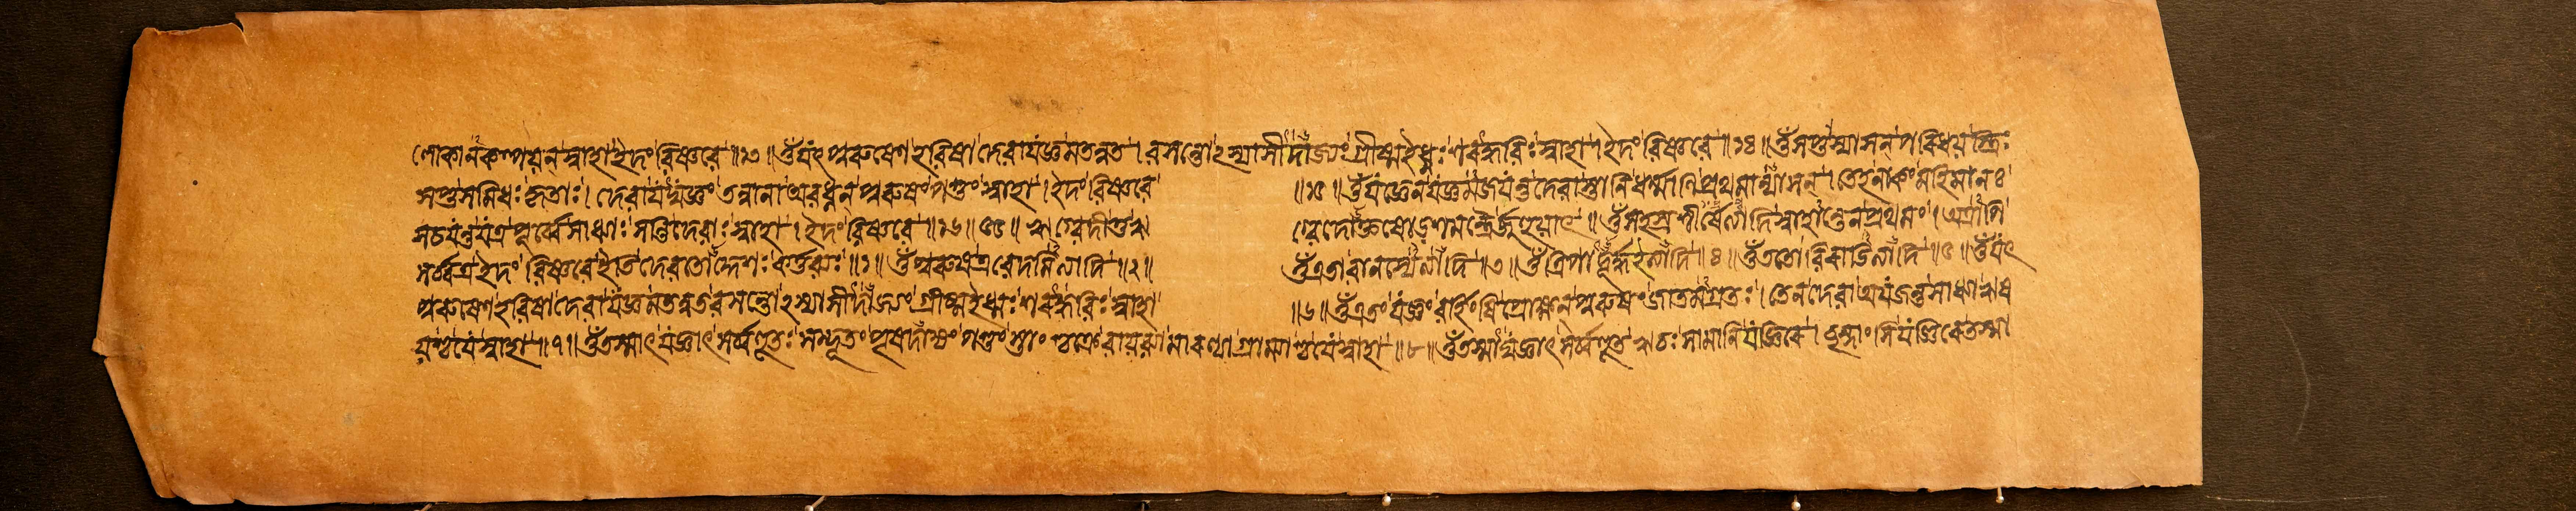 লোকানকল্পয়ন্স্বাহা ইদং বিষ্ণবে॥১৩॥ওঁ যৎ পুরুষেণ হবিষা দেবা যজ্ঞমতন্বত। বসন্তোঽস্যাসীদাজ্যং গ্রীষ্ম ইধ্মঃ শরদ্ধবিঃ স্বাহা। ইদং বিষ্ণবে॥১৪॥ওঁ সপ্তাস্যাসন্ পরিধয়স্ত্রিঃ
সপ্ত সমিধঃ কৃতাঃ। দেবা যদ্যজ্ঞং তন্বানা অবধ্নন্ পুরুষং পশুং স্বাহা। ইদং বিষ্ণবে॥১৫॥ওঁ যজ্ঞেন যজ্ঞমযজন্ত দেবাস্তানি ধর্ম্মাণি প্রথমান্যাসন্। তেহ নাকং মহিমানঃ
সচয়ন্ত যত্র পূর্ব্বে সাধ্যাঃ সন্তি দেবাঃ স্বাহা। ইদং বিষ্ণবে॥১৬॥ ঋগ্বেদীতু ঋগ্বেদোক্তষোড়শমন্ত্রৈর্জুহুয়াৎ॥ওঁ সহস্রশীর্ষেত্যাদিস্বাহান্তেন প্রথমং। অত্রাপি
সর্ব্বত্র ইদং বিষ্ণবে ইতি দেবতোদ্দেশঃ কর্ত্তব্যঃ॥১॥ওঁ পুরুষ এবেদমিত্যাদি॥২॥ওঁ এতাবানস্যেত্যাদি॥৩॥ওঁ ত্রিপাদূর্দ্ধ ইত্যাদি॥৪॥ওঁ ততো বিরাডিত্যাদি॥৫॥ওঁ যৎ
পুরুষেণ হবিষা দেবা যজ্ঞমতন্বত বসন্তোঽস্যাসীদাজ্যং গ্রীষ্ম ইধ্মঃ শরদ্ধবিঃ স্বাহা॥৬॥ওঁ এতং যজ্ঞং বর্হিষি প্রোক্ষন্ পুরুষং জাতমগ্রতঃ। তেন দেবা অযজন্ত সাধ্যা ঋষ
য়শ্চ যে স্বাহা॥৭॥ওঁ তস্মাৎ যজ্ঞাৎ সর্ব্বহুতঃ সম্ভৃতং পৃষদাজ্যং পশুংস্তাংশ্চক্রে বায়ব্যানারণ্যা গ্রাম্যাশ্চ যে স্বাহা॥৮॥ওঁ তস্মাদ্যজ্ঞাৎ সর্ব্বহুত ঋচঃ সামানি যজ্ঞিরে। ছন্দাংসি যজ্ঞিরে তস্মা